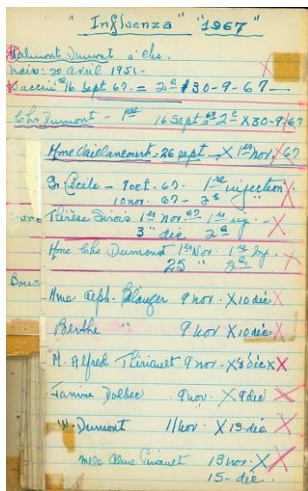 "Influenza" "1967"
Dumont, Chs.
Naiss: 20 avril 1951.
Vaccin 16 sept 67. = 2e 30-9-67 X
Chs Dumont - 1er 16 sept 2e X 30-9-67
Mme Vaillancourt - 26 sept X 1er Nov. 67
Sr Cécile - 7 oct. 67. 1re injection X
10 nov. 67 - 2e "
Thérèse Sirois 1er Nov. 67 1re inj. - X
3 déc 2e
Mme Chs Dumond 1er Nov. 1re inj. X
25 " 2e
Mme Alph. Bélanger 9 nov. X 10 déc X
Berthe " 9 nov X 10 déc X
M. Alfred Thériault 9 nov. X 8 déc X X
Janine Dalbec 9 nov. X 9 déc X
Dumont 11 nov. X 13 déc X
Melle Aline 13 nov. X X
15 - déc.